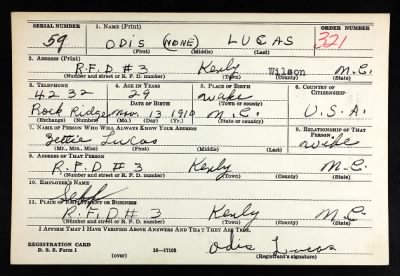 SERIAL NUMBER 1. NAME (Print) ORDER NUMBER
59 ODIS (NONE) LUCAS 321
(First) (Middle) (Last)
2. ADDRESS (Print)
R.F.D # 3 Kenly Wilson N.C.
(Number and street or R. F. D. number) (Town) (County) (State)
3. TELEPHONE 4. AGE IN YEARS 5. PLACE OF BIRTH 6. COUNTRY OF CITIZENSHIP
4232 29 Wake
DATE OF BIRTH (Town or county)
Rock Ridge Nov. 13 1910 N.C. U.S.A.
(Exchange) (Number) (Mo.) (Day) (Yr.) (State or country)
7. NAME OF PERSON WHO WILL ALWAYS KNOW YOUR ADDRESS 8. RELATIONSHIP OF THAT PERSON
Zettie Lucas Wife
(Mr., Mrs., Miss) (First) (Middle) (Last)
9. ADDRESS OF THAT PERSON
R.F.D # 3 Kenly N.C.
(Number and street or R. F. D. number) (Town) (County) (State)
10. EMPLOYER'S NAME
Self
11. PLACE OF EMPLOYMENT OR BUSINESS
R.F.D # 3 Kenly N.C.
(Number and street or R. F. D. number) (Town) (County) (State)
I AFFIRM THAT I HAVE VERIFIED ABOVE ANSWERS AND THAT THEY ARE TRUE.
REGISTRATION CARD
D. S. S. Form 1 (over) 16—17105 Odis Lucas